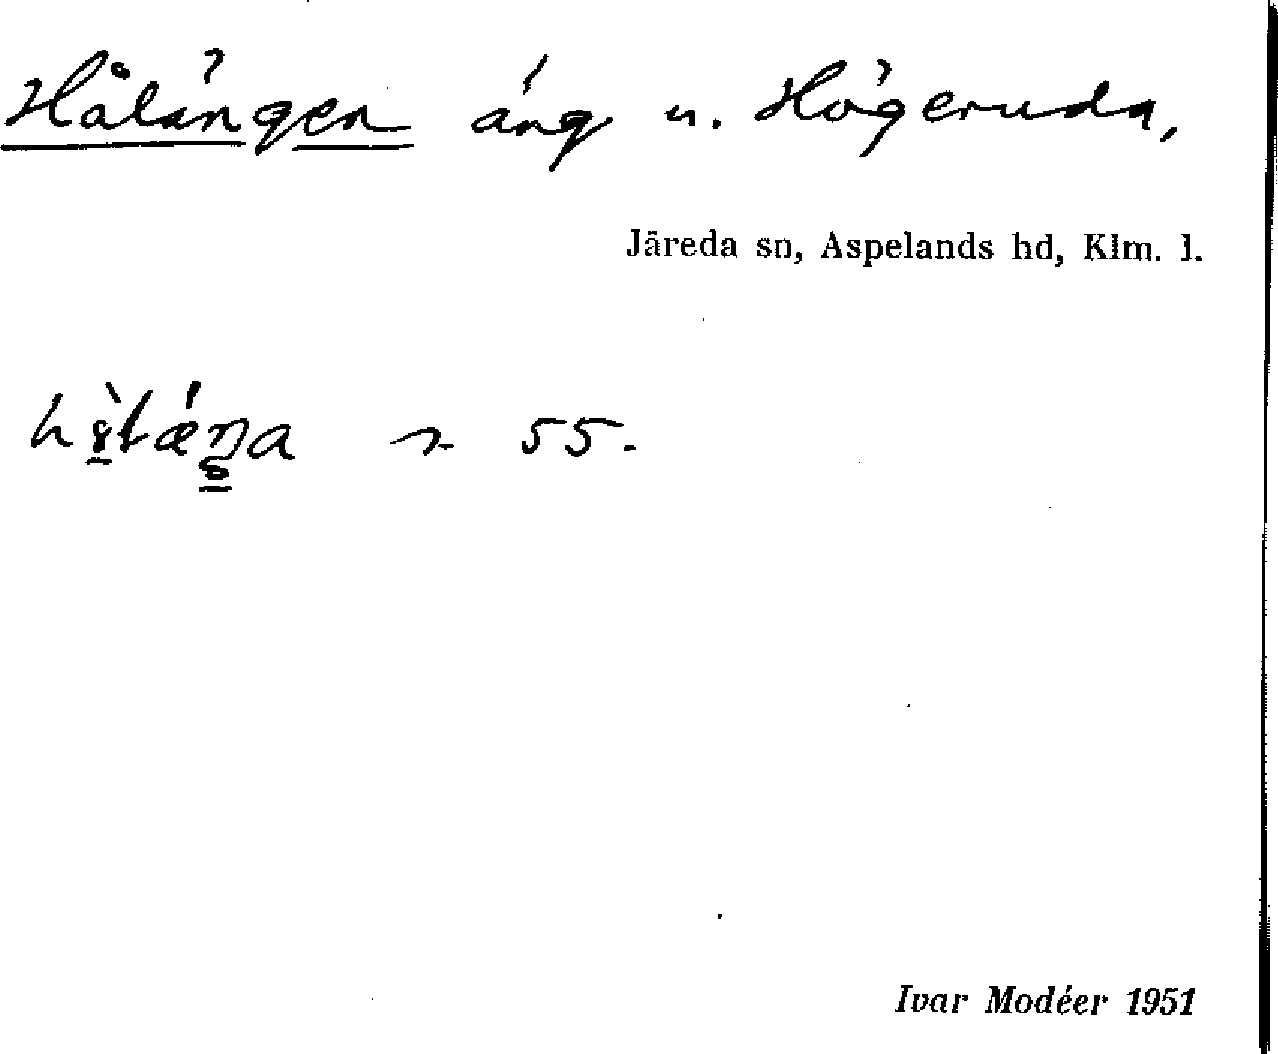 Hålängen äng u. Högeruda,
Järeda sn, Aspelands hd, Klm. l.
55.
Ivar Modéer 1951